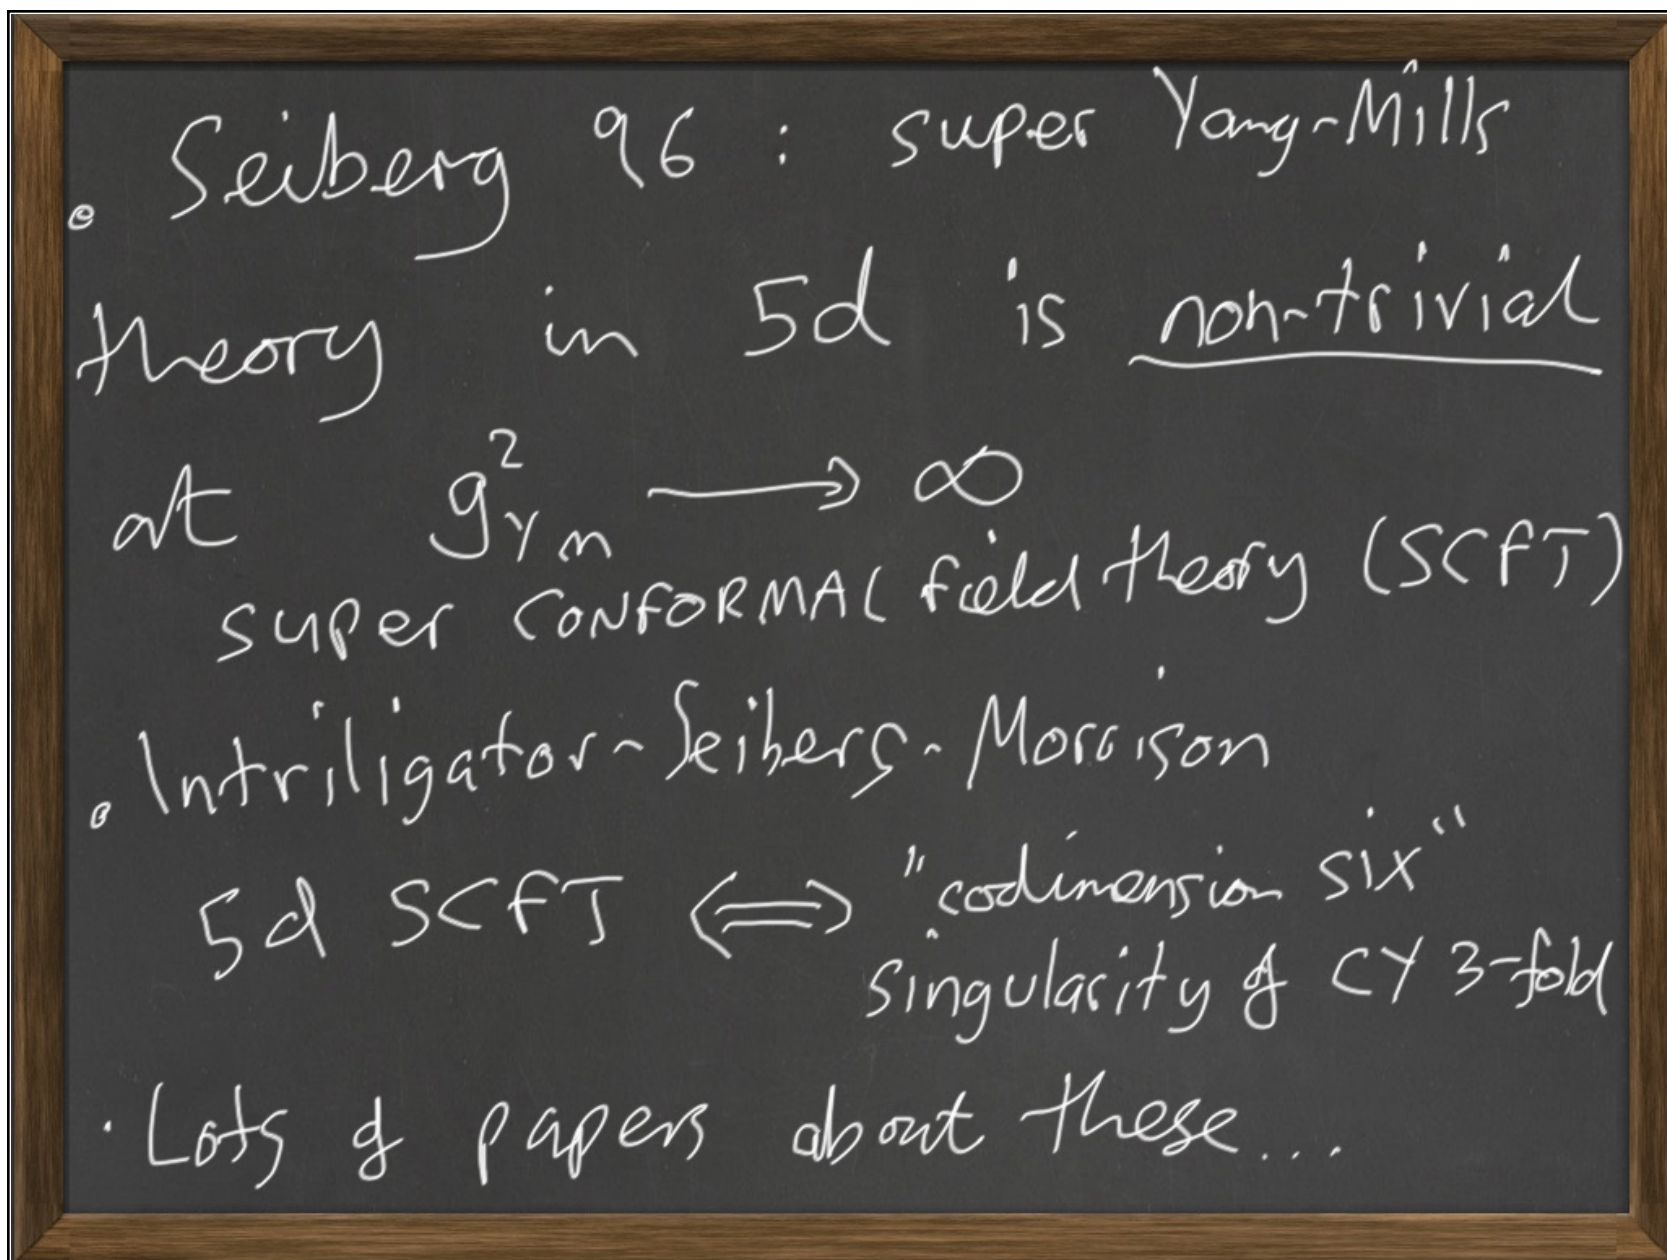 • Seiberg 96 : super Yang-Mills
theory in 5d is non-trivial
at g²YM ⟶ ∞
super CONFORMAL field theory (SCFT)
• Intriligator-Seiberg-Morrison
5d SCFT ⟺ "codimension six"
singularity of CY 3-fold
• Lots of papers about these...